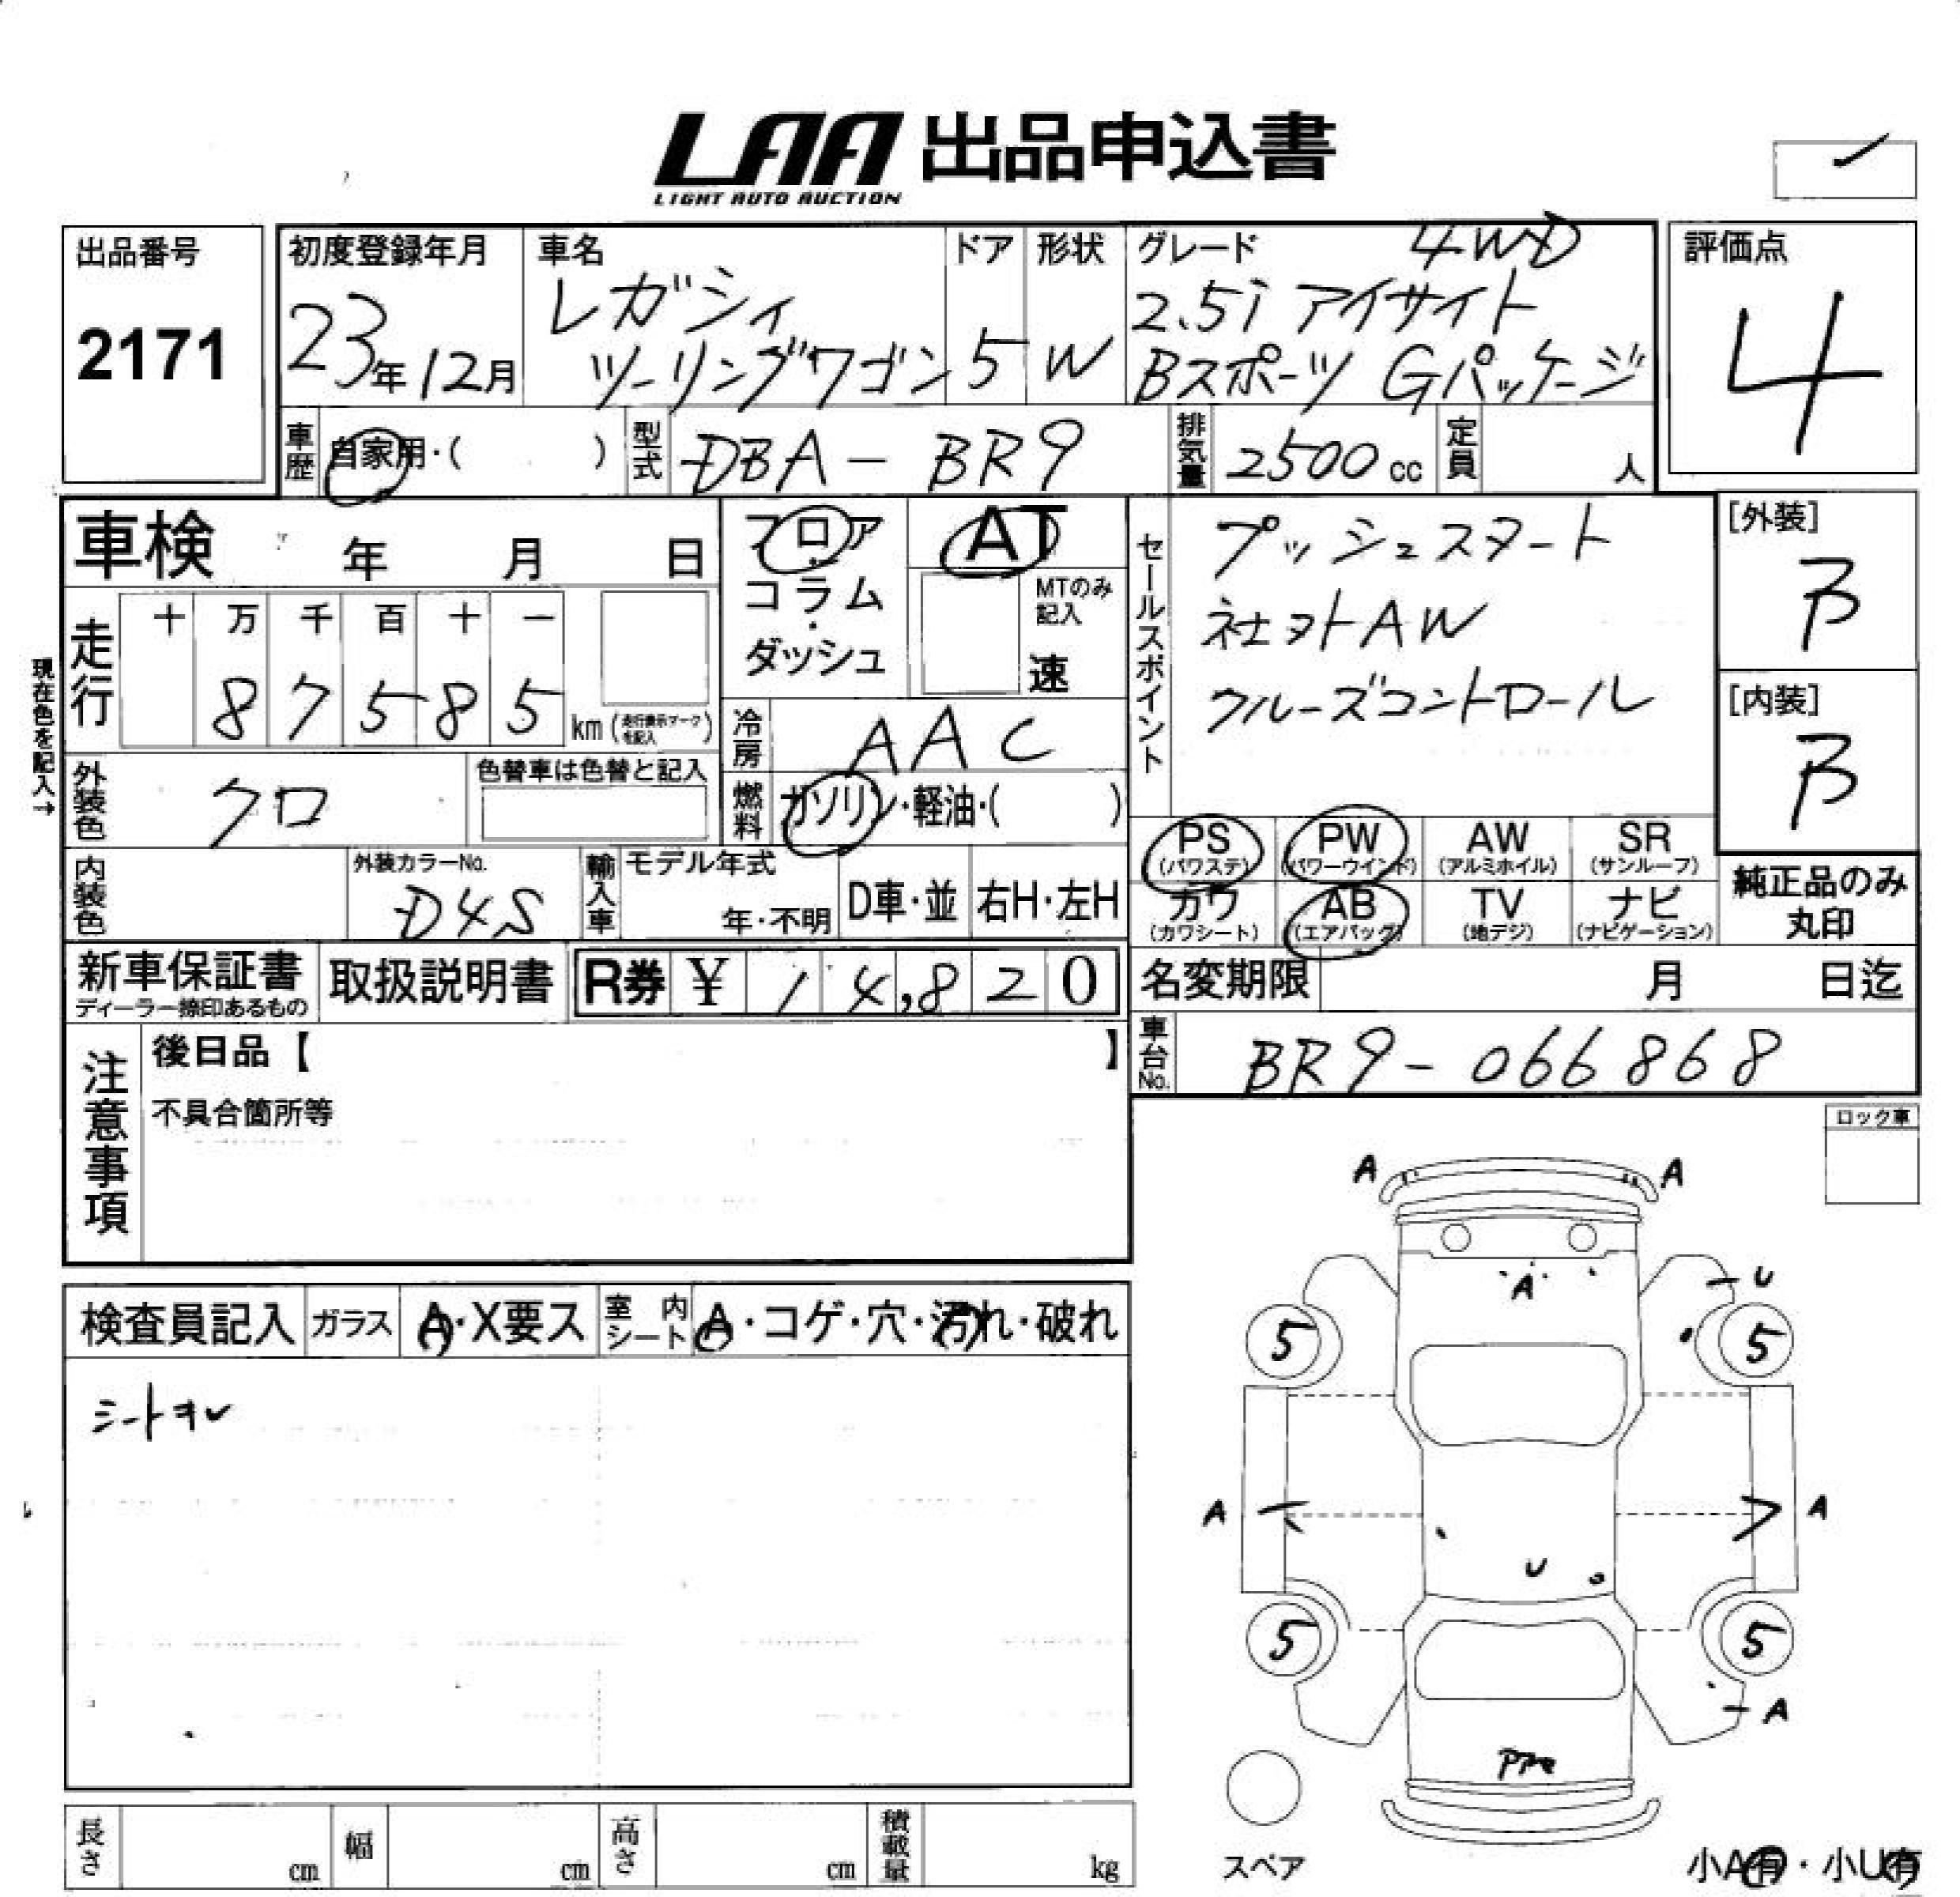 LAA 出品申込書
LIGHT AUTO AUCTION
出品番号
2171
初度登録年月
23年12月
車名
レガシィ
ツーリングワゴン
ドア
5
形状
W
グレード
4WD
2.5i アイサイト
Bスポーツ Gパッケージ
評価点
4
車歴
自家用・( )
型式
DBA-BR9
排気量
2500cc
定員
人
車検 年 月 日
フロア
・
コラム
・
ダッシュ
AT
MTのみ
記入
速
セールスポイント
プッシュスタート
社ヨトAW
クルーズコントロール
[外装]
B
[内装]
B
現在色を記入→
走行
十 万 千 百 十 一
8 7 5 8 5
km (走行表示マークを記入)
冷房
AAC
外装色
クロ
色替車は色替と記入
燃料
ガソリン・軽油・( )
PS
(パワステ)
PW
(パワーウインド)
AW
(アルミホイル)
SR
(サンルーフ)
カワ
(カワシート)
AB
(エアバッグ)
TV
(地デジ)
ナビ
(ナビゲーション)
純正品のみ
丸印
内装色
外装カラーNo.
D4S
輸入車
モデル年式
年・不明
D車・並
右H・左H
新車保証書
ディーラー捺印あるもの
取扱説明書
R券 ¥ 14,820
名変期限 月 日迄
車台No.
BR9-066868
注意事項
後日品【 】
不具合箇所等
ロック車
検査員記入
ガラス
A・X要ス
室内
シート
A・コゲ・穴・汚れ・破れ
シートヨレ
A A
A
U
5 5
A A
U
5 5
A
スペア
小A有・小U有
長さ cm
幅 cm
高さ cm
積載量 kg